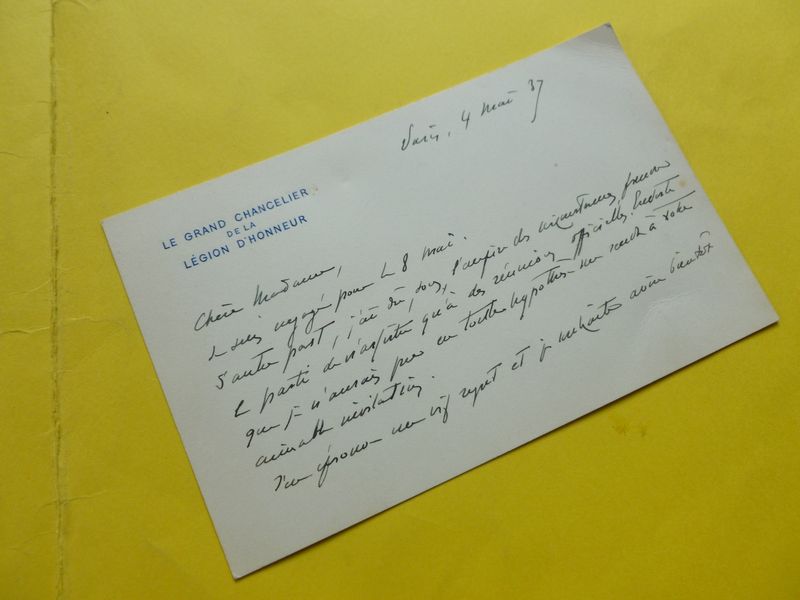 LE GRAND CHANCELIER
DE LA
LÉGION D'HONNEUR
Paris, 4 mai 37
Chère Madame,
Je suis engagé pour le 8 mai.
D'autre part, j'ai dû, sous l'empire des circonstances, prendre
le parti de n'assister qu'à des réunions officielles,
que je n'aurais pu en toute hypothèse me rendre à votre
aimable invitation.
J'en éprouve un vif regret et je souhaite avoir bientôt